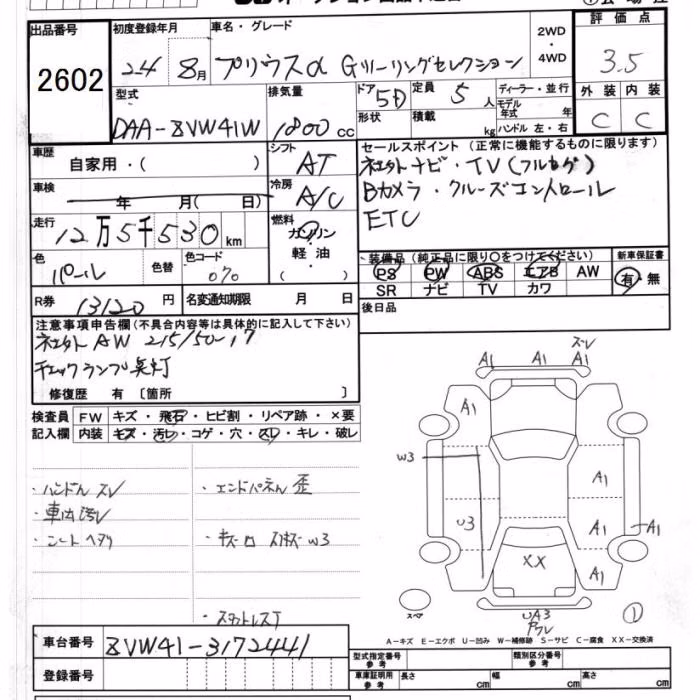 出品番号 初度登録年月 車名・グレード 2WD・4WD 評価点
2602 24 8月 プリウスα Gツーリングセレクション 3.5
型式 排気量 ドア 5D 定員 5人 ディーラー・並行 外装 内装
DAA-ZVW41W 1800cc 形状 積載 kg モデル年式 年 ハンドル 左・右 C C
車歴 自家用・( ) シフト AT セールスポイント (正常に機能するものに限ります)
社外ナビ・TV(フルセグ)
車検 年 月( 日) 冷房 A/C Bカメラ・クルーズコントロール
ETC
走行 12万5千530km 燃料 ガソリン・軽油・( )
色 パール 色替 色コード 070 装備品(純正品に限り○をつけてください) 新車保証書
PS PW ABS エアB AW 有・無
SR ナビ TV カワ
R券 13120円 名変通知期限 月 日 後日品
注意事項申告欄(不具合内容等は具体的に記入して下さい)
社外AW 215/50-17
チェックランプ点灯
修復歴 有 〔箇所 〕
検査員 FW キズ・飛石・ヒビ割・リペア跡・×要
記入欄 内装 キズ・汚レ・コゲ・穴・スレ・キレ・破レ
・ハンドルスレ ・エンドパネル歪
・車内汚レ
・シートヘタリ
スレ
A1 A1 A1
A1
W3
A1
U3 A1 A1
XX A1
スペア UA3 ①
車台番号 ZVW41-3172441
A-キズ E-エクボ U-凹み W-補修跡 S-サビ C-腐食 XX-交換済
登録番号 型式指定番号 参考 類別区分番号 参考
車庫証明用 参考 長さ cm 幅 cm 高さ cm